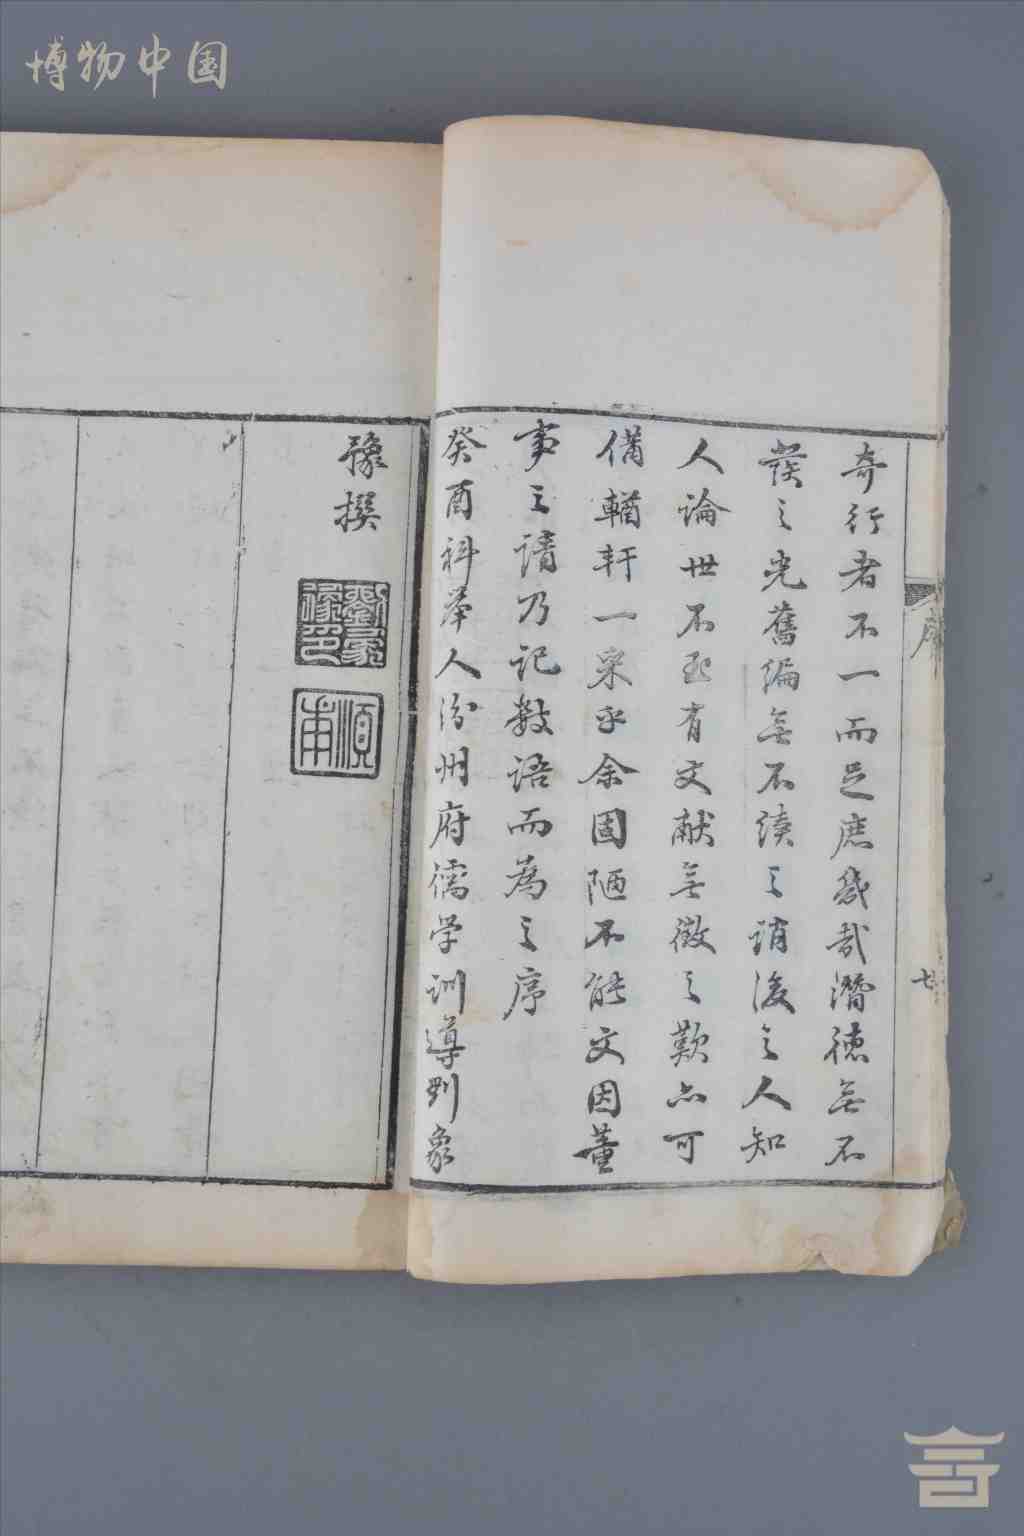 博物中国
序
七
奇行者不一而足庶幾哉潛德無不
發之光舊編無不續之誚後之人知
人論世不至有文献無徵之歎亦可
備輶軒一采乎余固陋不能文因董
事之請乃記數語而為之序
癸酉科举人汾州府儒学训導刘象
豫撰
劉象豫印
順甫